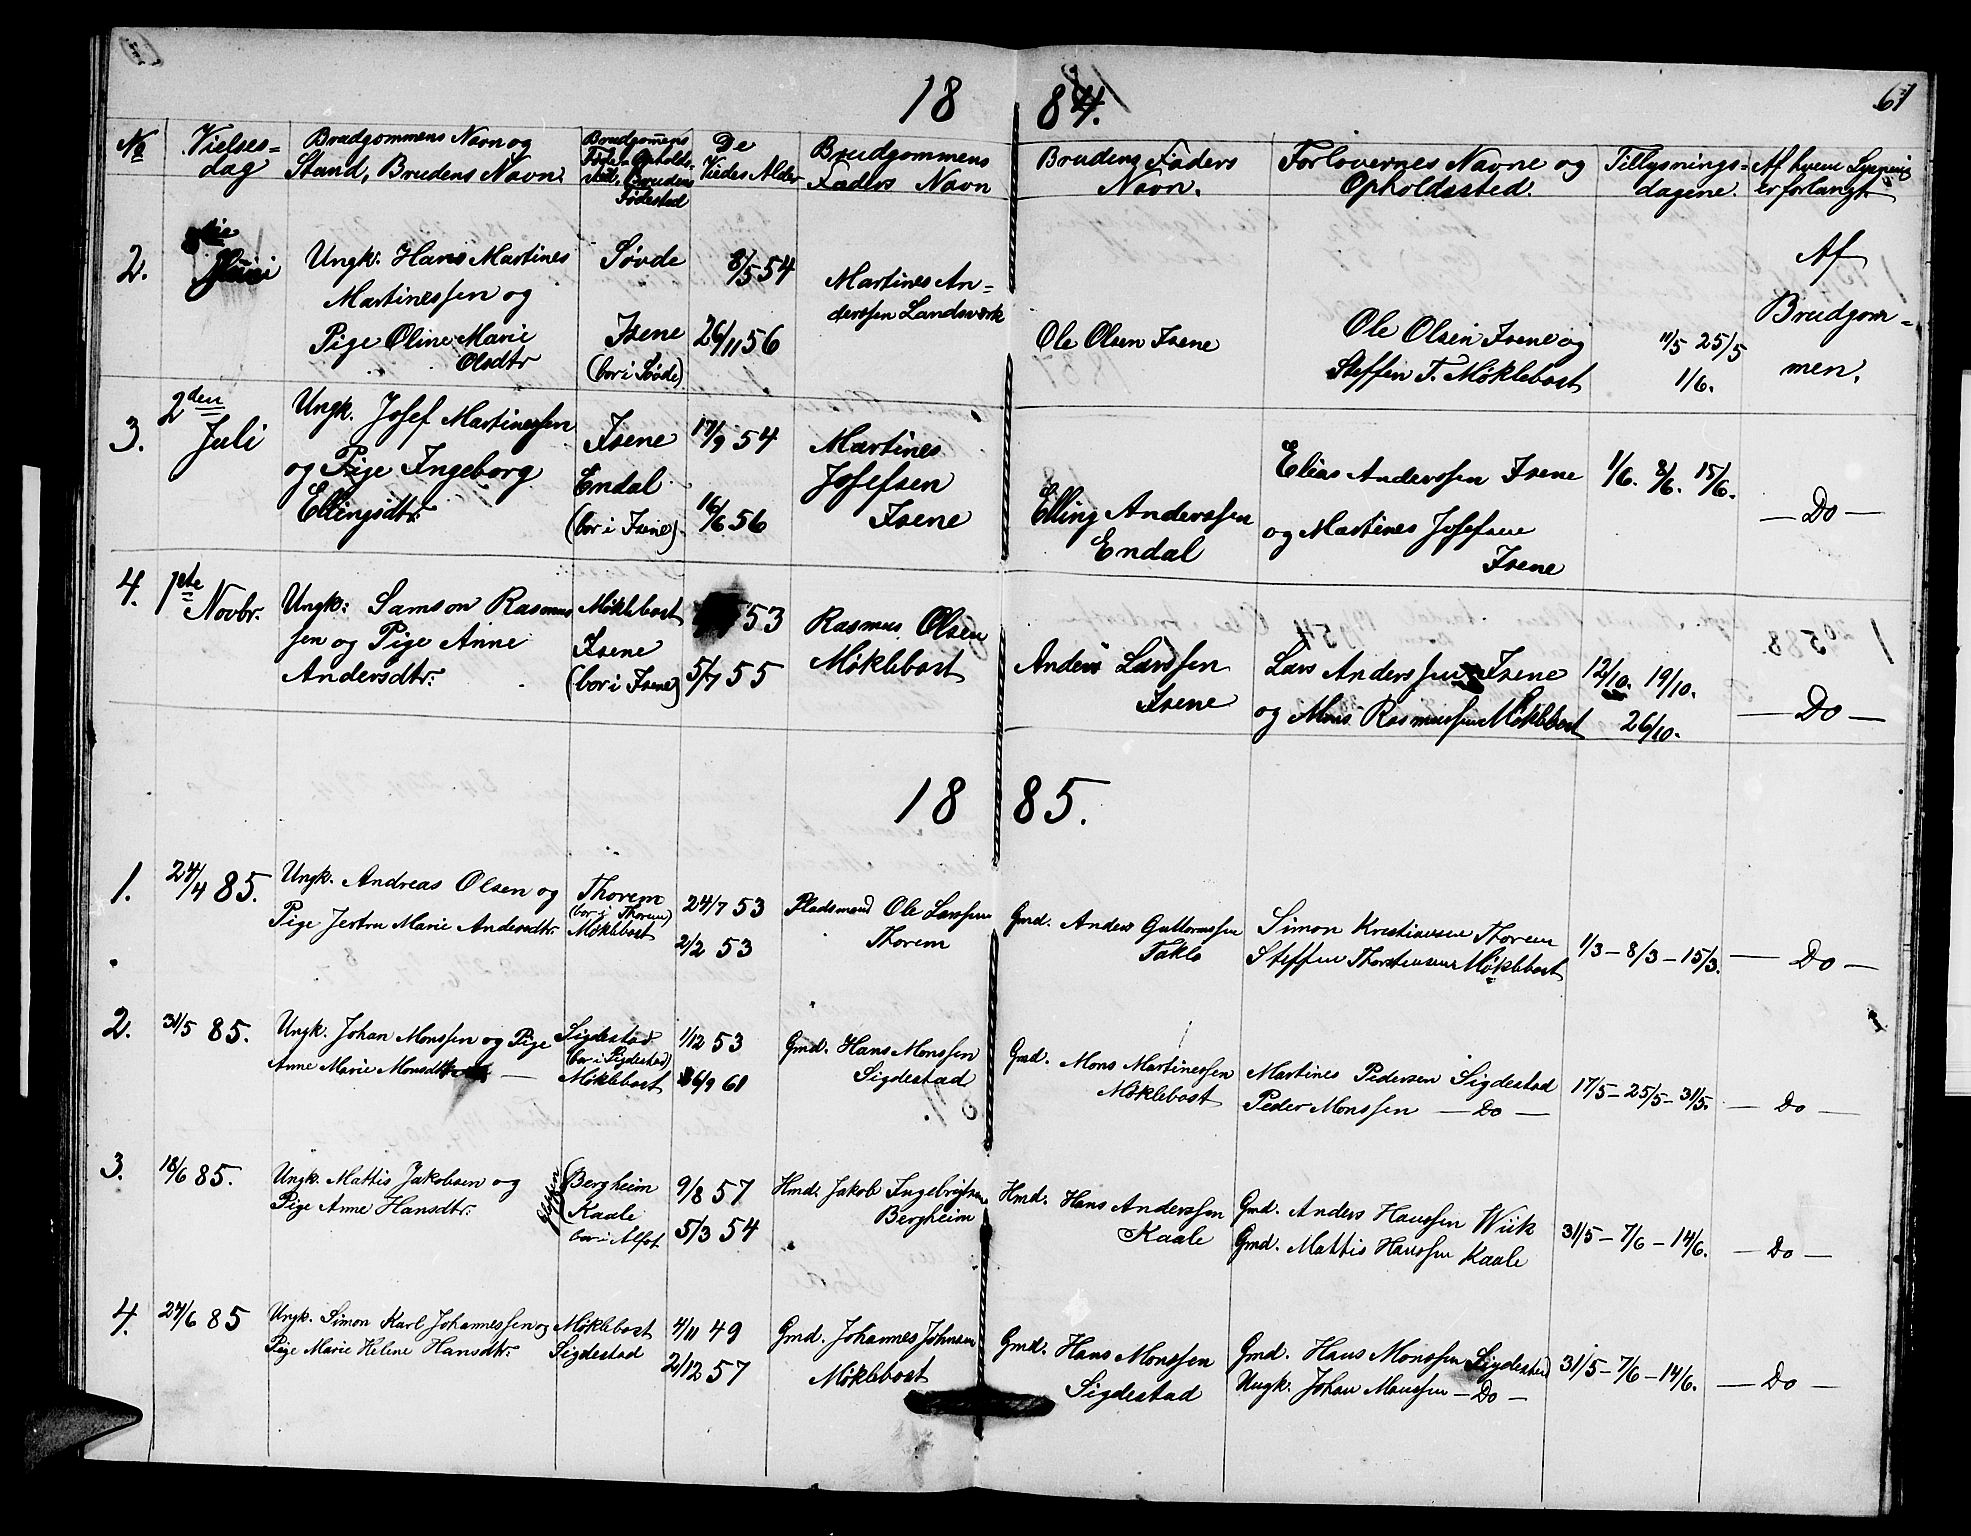 18 84.
61
No
Vielses=
dag
Brudgommens Navn og
Stand, Brudens Navn.
Brudgommens
Føde- Opholds-
sted, Brudens
Fødested
De
Viedes Alder
Brudgommens
Faders Navn
Brudens Faders
Navn.
Forlovernes Navne og
Opholdssted.
Tillysnings=
dagene.
Af hvem Lysning
er forlangt.
2.
Juni
Ungk. Hans Martines
Martinessen og
Pige Oline Marie
Olsdtr
Søvde
Isene
(bor i Søvde)
8/5 54
26/11 56
Martines An=
derssen Landsverk
Ole Olsen Isene
Ole Olsen Isene og
Steffen T. Møklebost
11/5 25/5
1/6.
Af
Brudgom=
men.
3.
2den
Juli
Ungk. Josef Martinessen
og Pige Ingeborg
Ellingsdtr.
Isene
Endal
(bor i Isene)
17/9 54
16/6 56
Martines
Josefsen
Isene
Elling Anderssen
Endal
Elias Anderssen Isene
og Martines Josefsen
Isene
1/6. 8/6. 15/6.
— Do —
4.
1ste
Novbr.
Ungk: Samson Rasmus
sen og Pige Anne
Andersdtr.
Møklebost
Isene
(bor i Isene)
53
5/7 55
Rasmus Olsen
Møklebost
Anders Larssen
Isene
Lars Anderssen Isene
og Mons Rasmussen Møklebost
12/10. 19/10.
26/10.
— Do —
18 85.
1.
24/4 85.
Ungk. Andreas Olsen og
Pige Jertru Marie Andersdtr.
Thorem
(bor i Thorem)
Møklebost
24/7 53
2/2 53
Pladsmand Ole Larssen
Thorem
Gmd. Anders Guttormssen
Taklo
Simon Kristiansen Thorem
Steffen Thorstensen Møklebost
1/3 – 8/3 – 15/3.
— Do —
2.
31/5 85.
Ungk. Johan Monssen og Pige
Anne Marie Monsdtr. —
Sigdestad
bor i Sigdestad)
Møklebost
1/12 53
6/9 61
Gmd. Hans Monssen
Sigdestad
Gmd. Mons Martinessen
Møklebost
Martines Pedersen Sigdestad
Peder Monssen — Do —
17/5 – 25/5 – 31/5.
— Do —
3.
18/6 85.
Ungk. Mattis Jakobsen og
Pige Anne Hansdtr.
(Bergheim
Kaale
bor i Alfot.
9/8 57
5/3 54
Hmd. Jakob Ingebrigtsen
Bergheim
Hmd. Hans Anderssen
Kaale
Gmd. Anders Hanssen Wiik
Gmd. Mattis Hanssen Kaale
31/5 – 7/6 – 14/6.
— Do —
4.
24/6 85
Ungk. Simon Karl Johannessen og
Pige Marie Heline Hansdtr.
Møklebost
Sigdestad
4/11 49
2/12 57
Gmd. Johannes Johnsen
Møklebost
Gmd. Hans Monssen
Sigdestad
Gmd. Hans Monssen Sigdestad
Ungk. Johan Monssen — Do —
31/5 – 7/6 – 14/6.
— Do —